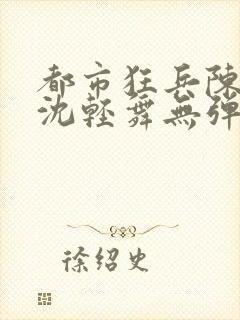 都市狂兵陳
沈輕舞無彈
徐紹史